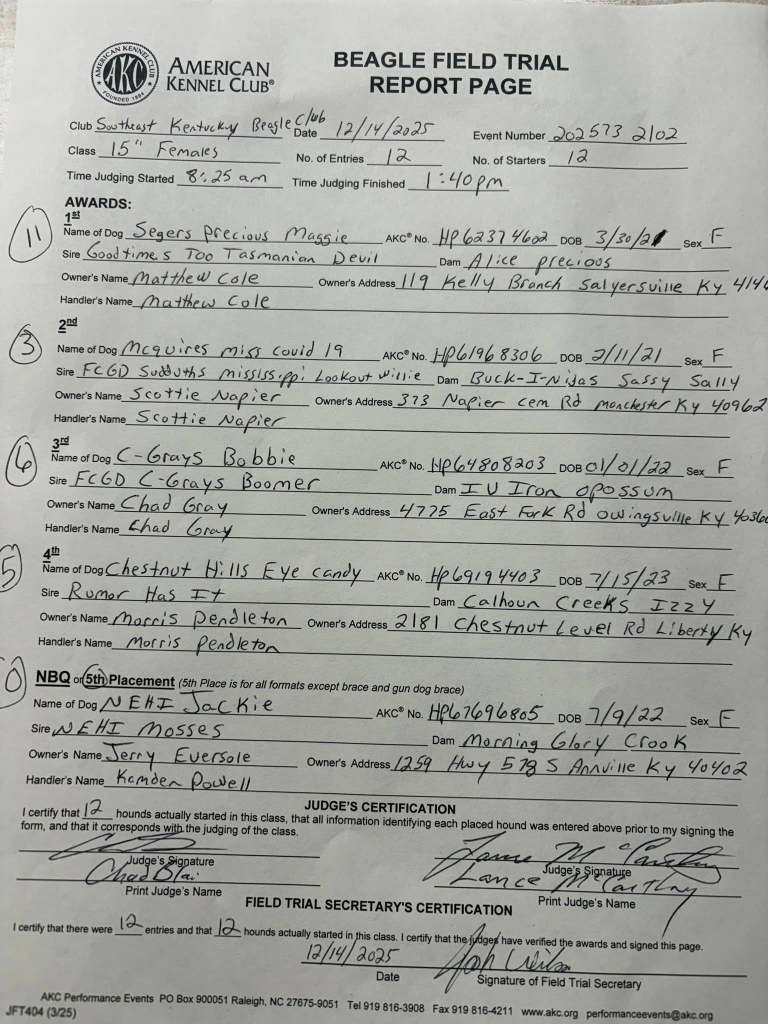 AMERICAN KENNEL CLUB AKC FOUNDED 1884
AMERICAN
KENNEL CLUB®
BEAGLE FIELD TRIAL
REPORT PAGE
Club Southeast Kentucky Beagle Club Date 12/14/2025 Event Number 202573 2102
Class 15" Females No. of Entries 12 No. of Starters 12
Time Judging Started 8:25 am Time Judging Finished 1:40 pm
AWARDS:
11
1st
Name of Dog Segers Precious Maggie AKC® No. HP62374602 DOB 3/30/21 Sex F
Sire Goodtimes Too Tasmanian Devil Dam Alice precious
Owner's Name Matthew Cole Owner's Address 119 Kelly Branch Salyersville Ky 4146
Handler's Name Matthew Cole
3
2nd
Name of Dog Mcquires miss covid 19 AKC® No. HP61968306 DOB 2/11/21 Sex F
Sire FCGD Sudduths mississippi Lookout Willie Dam Buck-I-Nidas Sassy Sally
Owner's Name Scottie Napier Owner's Address 373 Napier cem Rd manchester Ky 40962
Handler's Name Scottie Napier
6
3rd
Name of Dog C-Grays Bobbie AKC® No. HP64808203 DOB 01/01/22 Sex F
Sire FCGD C-Grays Boomer Dam IV Iron opossum
Owner's Name Chad Gray Owner's Address 4775 East Fork Rd owingsville Ky 40360
Handler's Name Chad Gray
5
4th
Name of Dog Chestnut Hills Eye candy AKC® No. HP69194403 DOB 7/15/23 Sex F
Sire Rumor Has It Dam Calhoun Creeks Izzy
Owner's Name Morris Pendleton Owner's Address 2181 Chestnut Level Rd Liberty Ky
Handler's Name Morris Pendleton
0
NBQ or 5th Placement (5th Place is for all formats except brace and gun dog brace)
Name of Dog NEHI Jackie AKC® No. HP67696805 DOB 7/9/22 Sex F
Sire NEHI Mosses Dam Morning Glory Crook
Owner's Name Jerry Eversole Owner's Address 1259 Hwy 578 S Annville Ky 40402
Handler's Name Kamden Powell
JUDGE'S CERTIFICATION
I certify that 12 hounds actually started in this class, that all information identifying each placed hound was entered above prior to my signing the
form, and that it corresponds with the judging of the class.
Lance McCarthy
Judge's Signature Judge's Signature
Chad Blai Lance McCarthy
Print Judge's Name Print Judge's Name
FIELD TRIAL SECRETARY'S CERTIFICATION
I certify that there were 12 entries and that 12 hounds actually started in this class. I certify that the judges have verified the awards and signed this page.
12/14/2025 Josh Wilson
Date Signature of Field Trial Secretary
AKC Performance Events PO Box 900051 Raleigh, NC 27675-9051 Tel 919 816-3908 Fax 919 816-4211 www.akc.org performanceevents@akc.org
JFT404 (3/25)